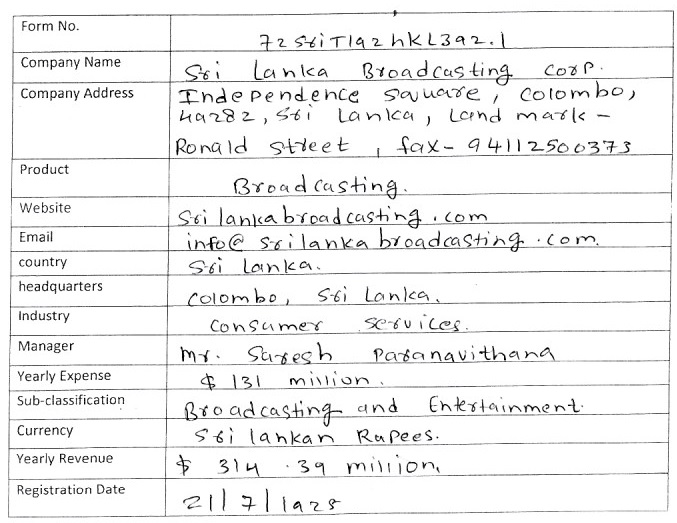 Form No. 72SriT192hKL392.1
Company Name Sri Lanka Broadcasting Corp.
Company Address Independence Square, Colombo,
49282, Sri Lanka, Land mark -
Ronald Street, fax- 94112500373
Product Broadcasting.
Website Srilankabroadcasting.com
Email info@srilankabroadcasting.com.
country Sri Lanka.
headquarters Colombo, Sri Lanka.
Industry Consumer services.
Manager Mr. Saresh Paranavithana
Yearly Expense $ 131 million.
Sub-classification Broadcasting and Entertainment.
Currency Sri lankan Rupees.
Yearly Revenue $ 314.39 million.
Registration Date 21/7/1925